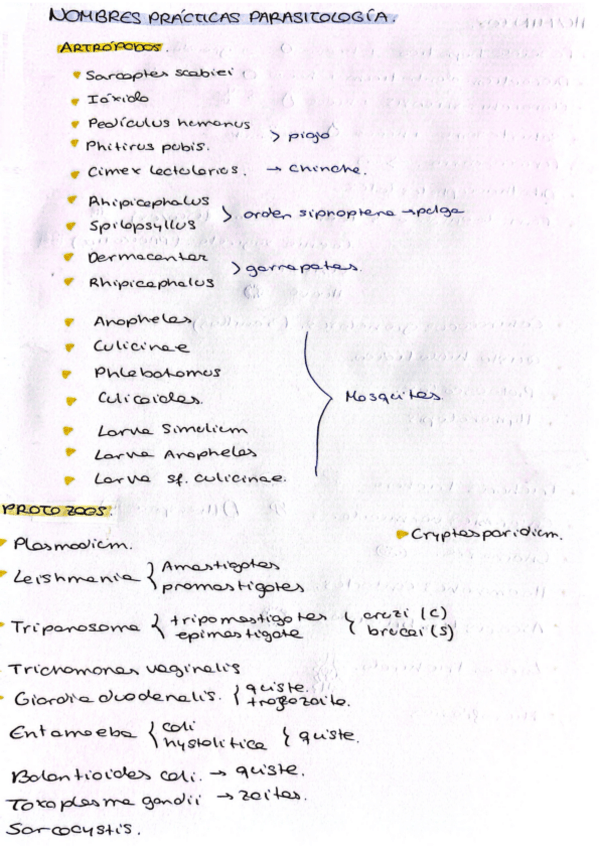 NOMBRES PRÁCTICAS PARASITOLOGÍA.
ARTRÓPODOS.
Sarcoptes scabiei
Ióxido
Pediculus hemanus
Phitirus pubis.
> piojo
Cimex lectularius. → chinche.
Rhipicephalus
Spilopsyllus
> orden siphoptera → pulga
Dermacentor
Rhipicephalus
> garrapatas.
Anopheles
Culicinae
Phlebotomus
Culicoides.
Larva Simulium
Larva Anopheles
Larva sf. culicinae.
Mosquitos.
PROTOZOOS.
Plasmodium.
Cryptosporidium.
Leishmania { Amastigotes
promastigotes
Tripanosoma { tripomastigotes { cruzi (C)
epimastigote brucei (S)
Trichomonas vaginalis
Giardia duodenalis. { quiste.
trofozoito.
Entamoeba { coli
hystolitica { quiste.
Balantioides coli. → quiste.
Toxoplasma gondii → zoitos.
Sarcocystis.